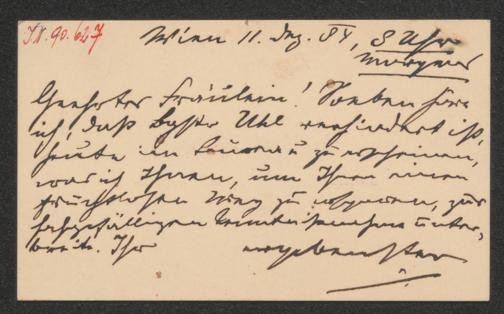 I.N. 90.627
Wien 11. Dez. 84, 8 Uhr
morgens
Geehrtes Fräulein! Soeben höre
ich, daß Uhl verhindert ist,
heute im zu erscheinen,
was ich Ihnen, um Ihnen einen
fruchtlosen Weg zu ersparen, zur
hochgefälligen Kenntnisnahme unter-
breite. Ihr ergebenster